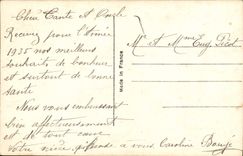 Cher Tante et Oncle
Recevez pour l'Année
1935 nos meilleurs
souhaits de bonheur
et surtout de bonne
santé
Nous vous embrassons
bien affectueusement
et de tout cœur
Votre nièce
a vous Caroline
Mr et Mme Eug.
Made in France